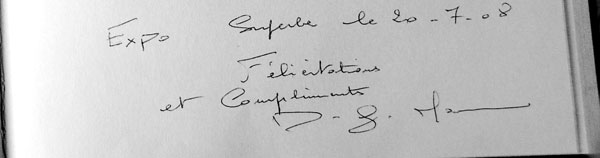 Expo Superbe le 20-7-08
Félicitations
et Compliments